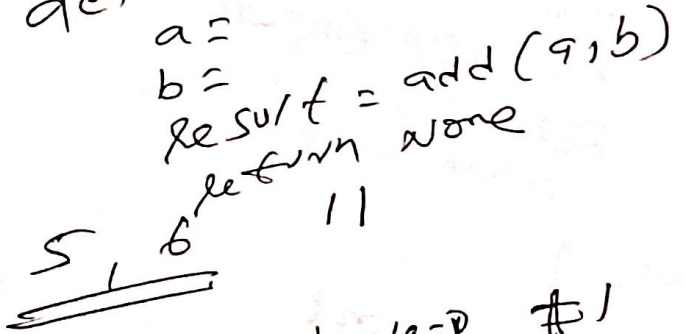 a =
b =
result = add (a, b)
return None
5, 6 11
#1